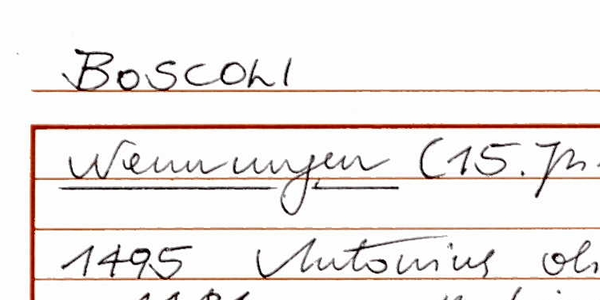 BOSCOLI
Nennungen (15. Jh.
1495 Antonius